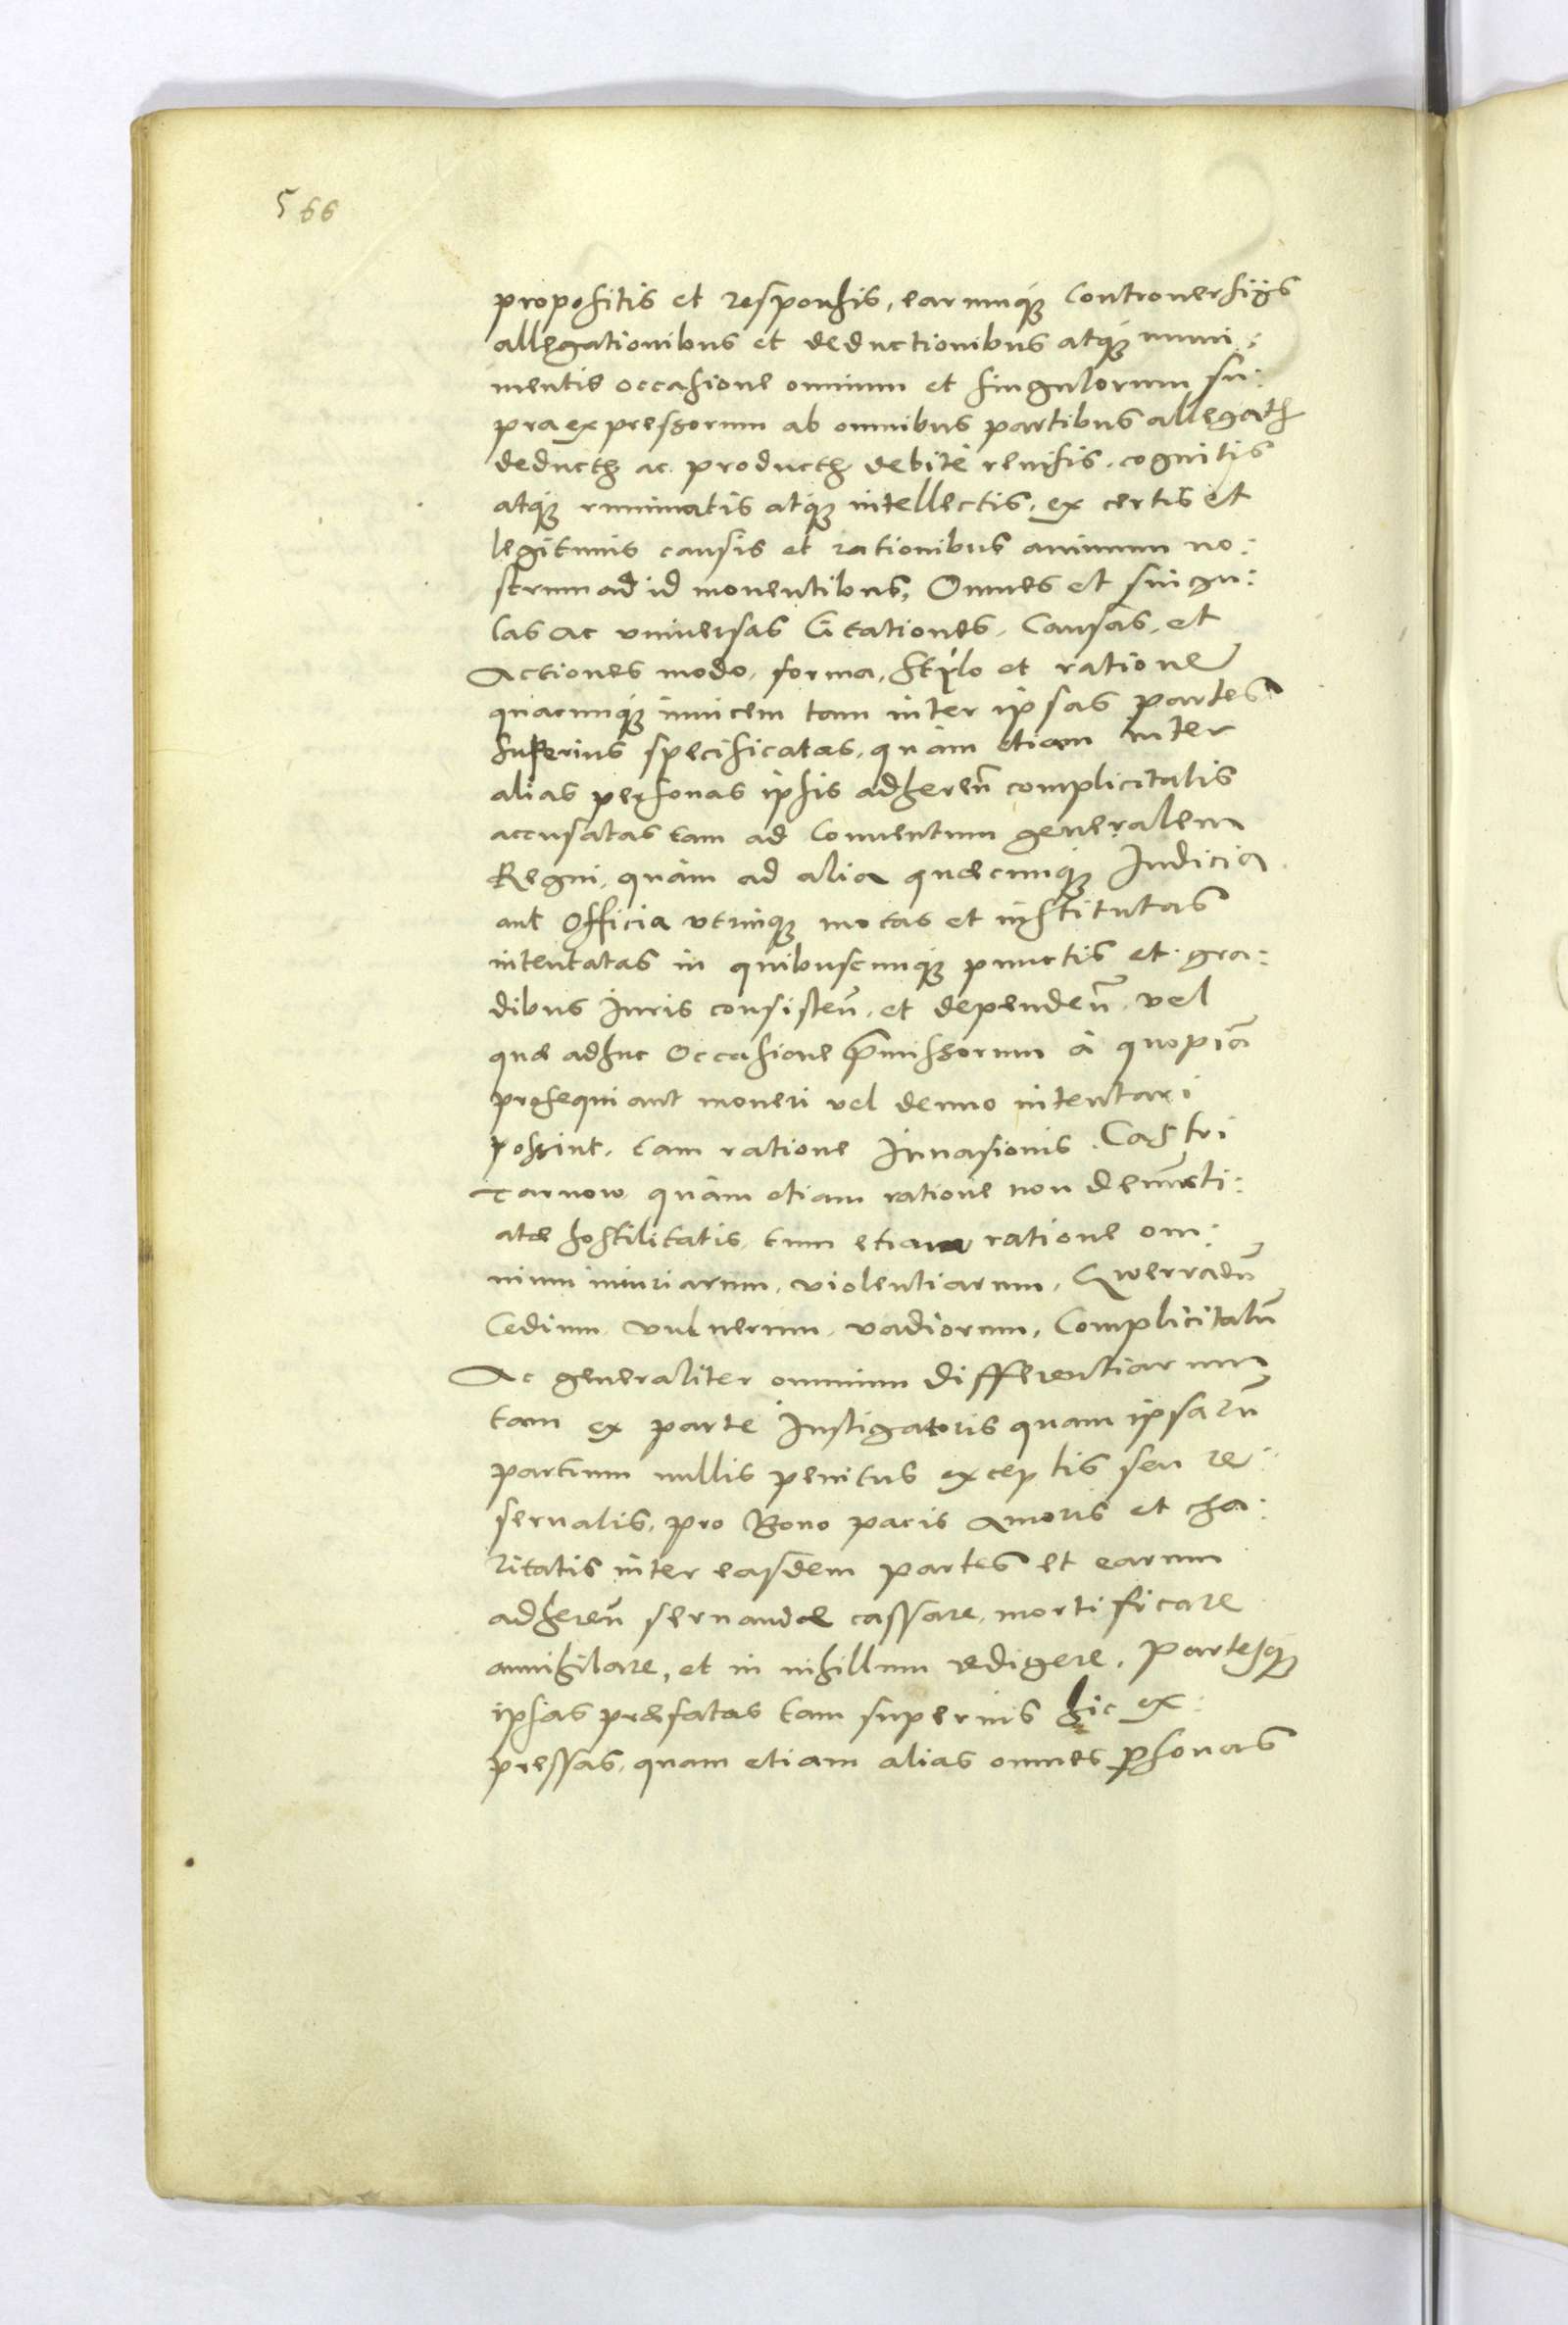 566
propositis et responsis, earumque controversijs
allegationibus et deductionibus atque muni:
mentis occasione omnium et singulorum su:
pra expressorum ab omnibus partibus allegatis
deductis ac productis debite revisis, cognitis
atque ruminatis atque intellectis, ex certis et
legitimis causis et rationibus animum no:
strum ad id moventibus, Omnes et singu:
las ac universas Citationes, Causas, et
Actiones modo, forma, stylo et ratione
quacunque invicem tam inter ipsas partes
superius specificatas, quàm etiam inter
alias personas ipsis adheren̄ complicitatis
accusatas tam ad Conventum generalem
Regni, quàm ad alia quæcunque Iudicia
aut Officia utrinque motas et institutas
intentatas in quibuscunque punctis et gra:
dibus Iuris consisten̄, et dependen̄, vel
quæ adhuc Occasione p̄missorum à quopiā
prosequi aut moveri vel denuo intentari
possint, tam ratione Invasionis Castri
Tarnow quàm etiam ratione non denuncti:
atæ hostilitatis, tum etiam ratione om:
nium iniuriarum, violentiarum, Gwerrarū
Cedium, vulnerum, vadiorum, Complicitatū
Ac generaliter omnium differentiarum
tam ex parte Instigatoris quam ipsarū
partium nullis penitus exceptis seu re:
servatis, pro Bono pacis Amoris et cha:
ritatis inter easdem partes et earum
adheren̄ servandæ cassare, mortificare
annihilare, et in nihillum redigere, Partesque
ipsas præfatas tam superius hic ex:
pressas, quam etiam alias omnes personas